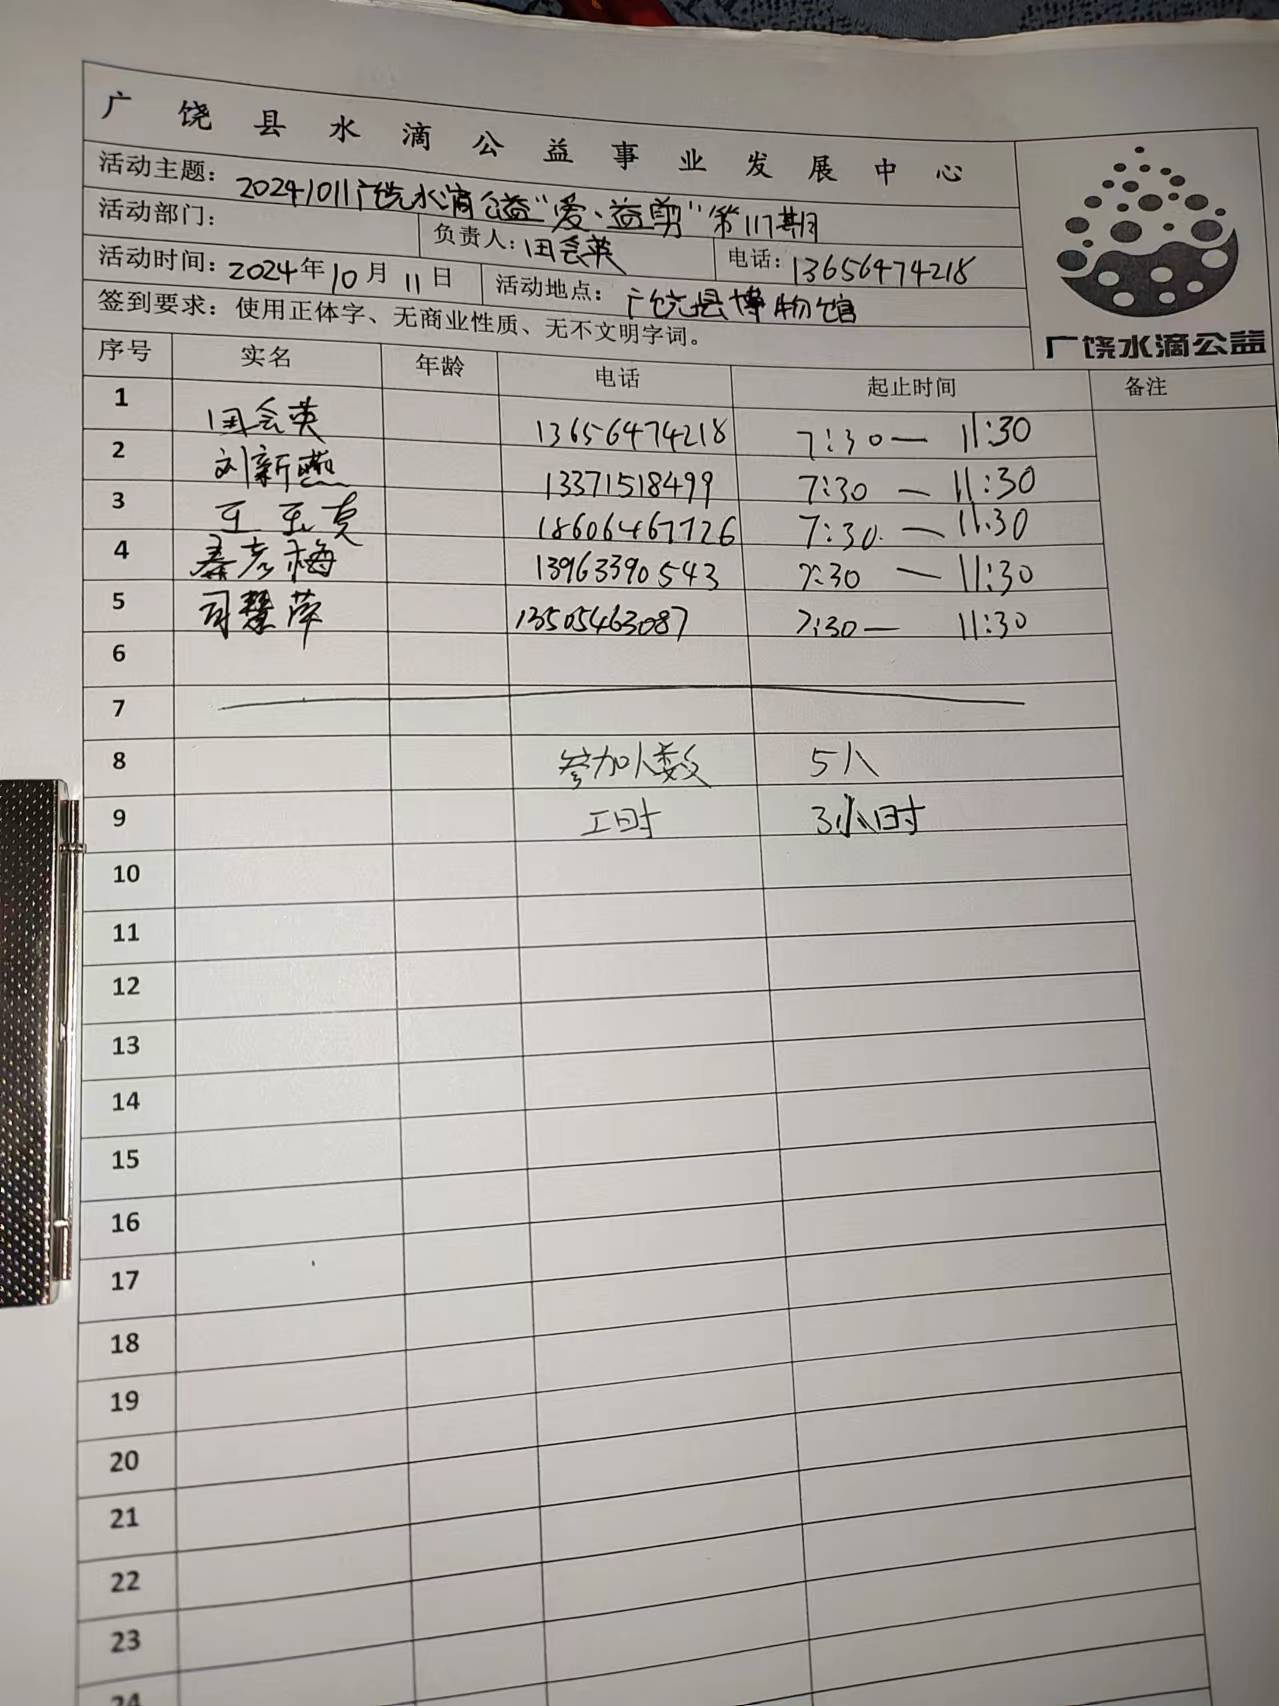 广饶县水滴公益事业发展中心
活动主题：20241011广饶水滴公益“爱·益剪”第117期
活动部门：
负责人：田会英 电话：13656474218
活动时间：2024年10月11日 活动地点：广饶县博物馆
签到要求：使用正体字、无商业性质、无不文明字词。
广饶水滴公益
序号 实名 年龄 电话 起止时间 备注
1 田会英 13656474218 7:30— 11:30
2 刘新燕 13371518499 7:30 — 11:30
3 王玉 18606467726 7:30 — 11:30
4 秦彦梅 13963390543 7:30 — 11:30
5 司慧萍 13505463087 7:30— 11:30
6
7
8 参加人数 5人
9 工时 3小时
10
11
12
13
14
15
16
17
18
19
20
21
22
23
24